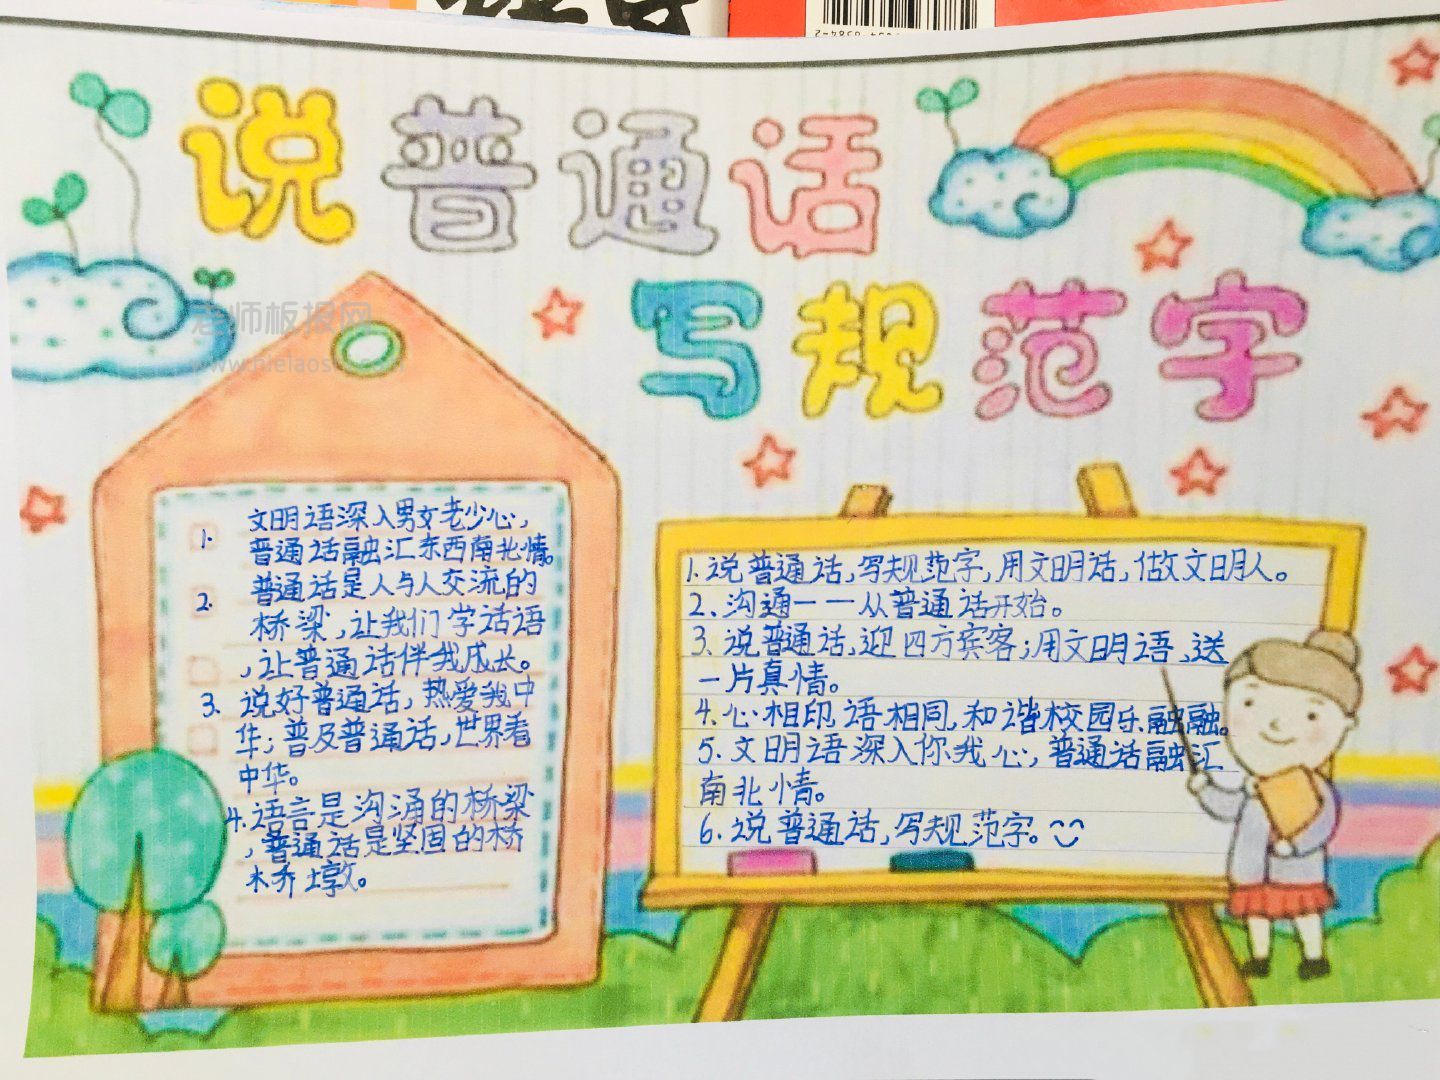 说普通话
写规范字
老师板报网
1. 文明语深入男女老少心，
普通话融汇东西南北情。
2. 普通话是人与人交流的
桥梁，让我们学话语
，让普通话伴我成长。
3. 说好普通话，热爱我中
华；普及普通话，世界看
中华。
4. 语言是沟涌的桥梁
，普通话是坚固的桥
桥墩。
1. 说普通话，写规范字，用文明话，做文明人。
2. 沟通——从普通话开始。
3. 说普通话，迎四方宾客；用文明语，送
一片真情。
4. 心相印，语相同，和谐校园乐融融。
5. 文明语深入你我心，普通话融汇
南北情。
6. 说普通话，写规范字。